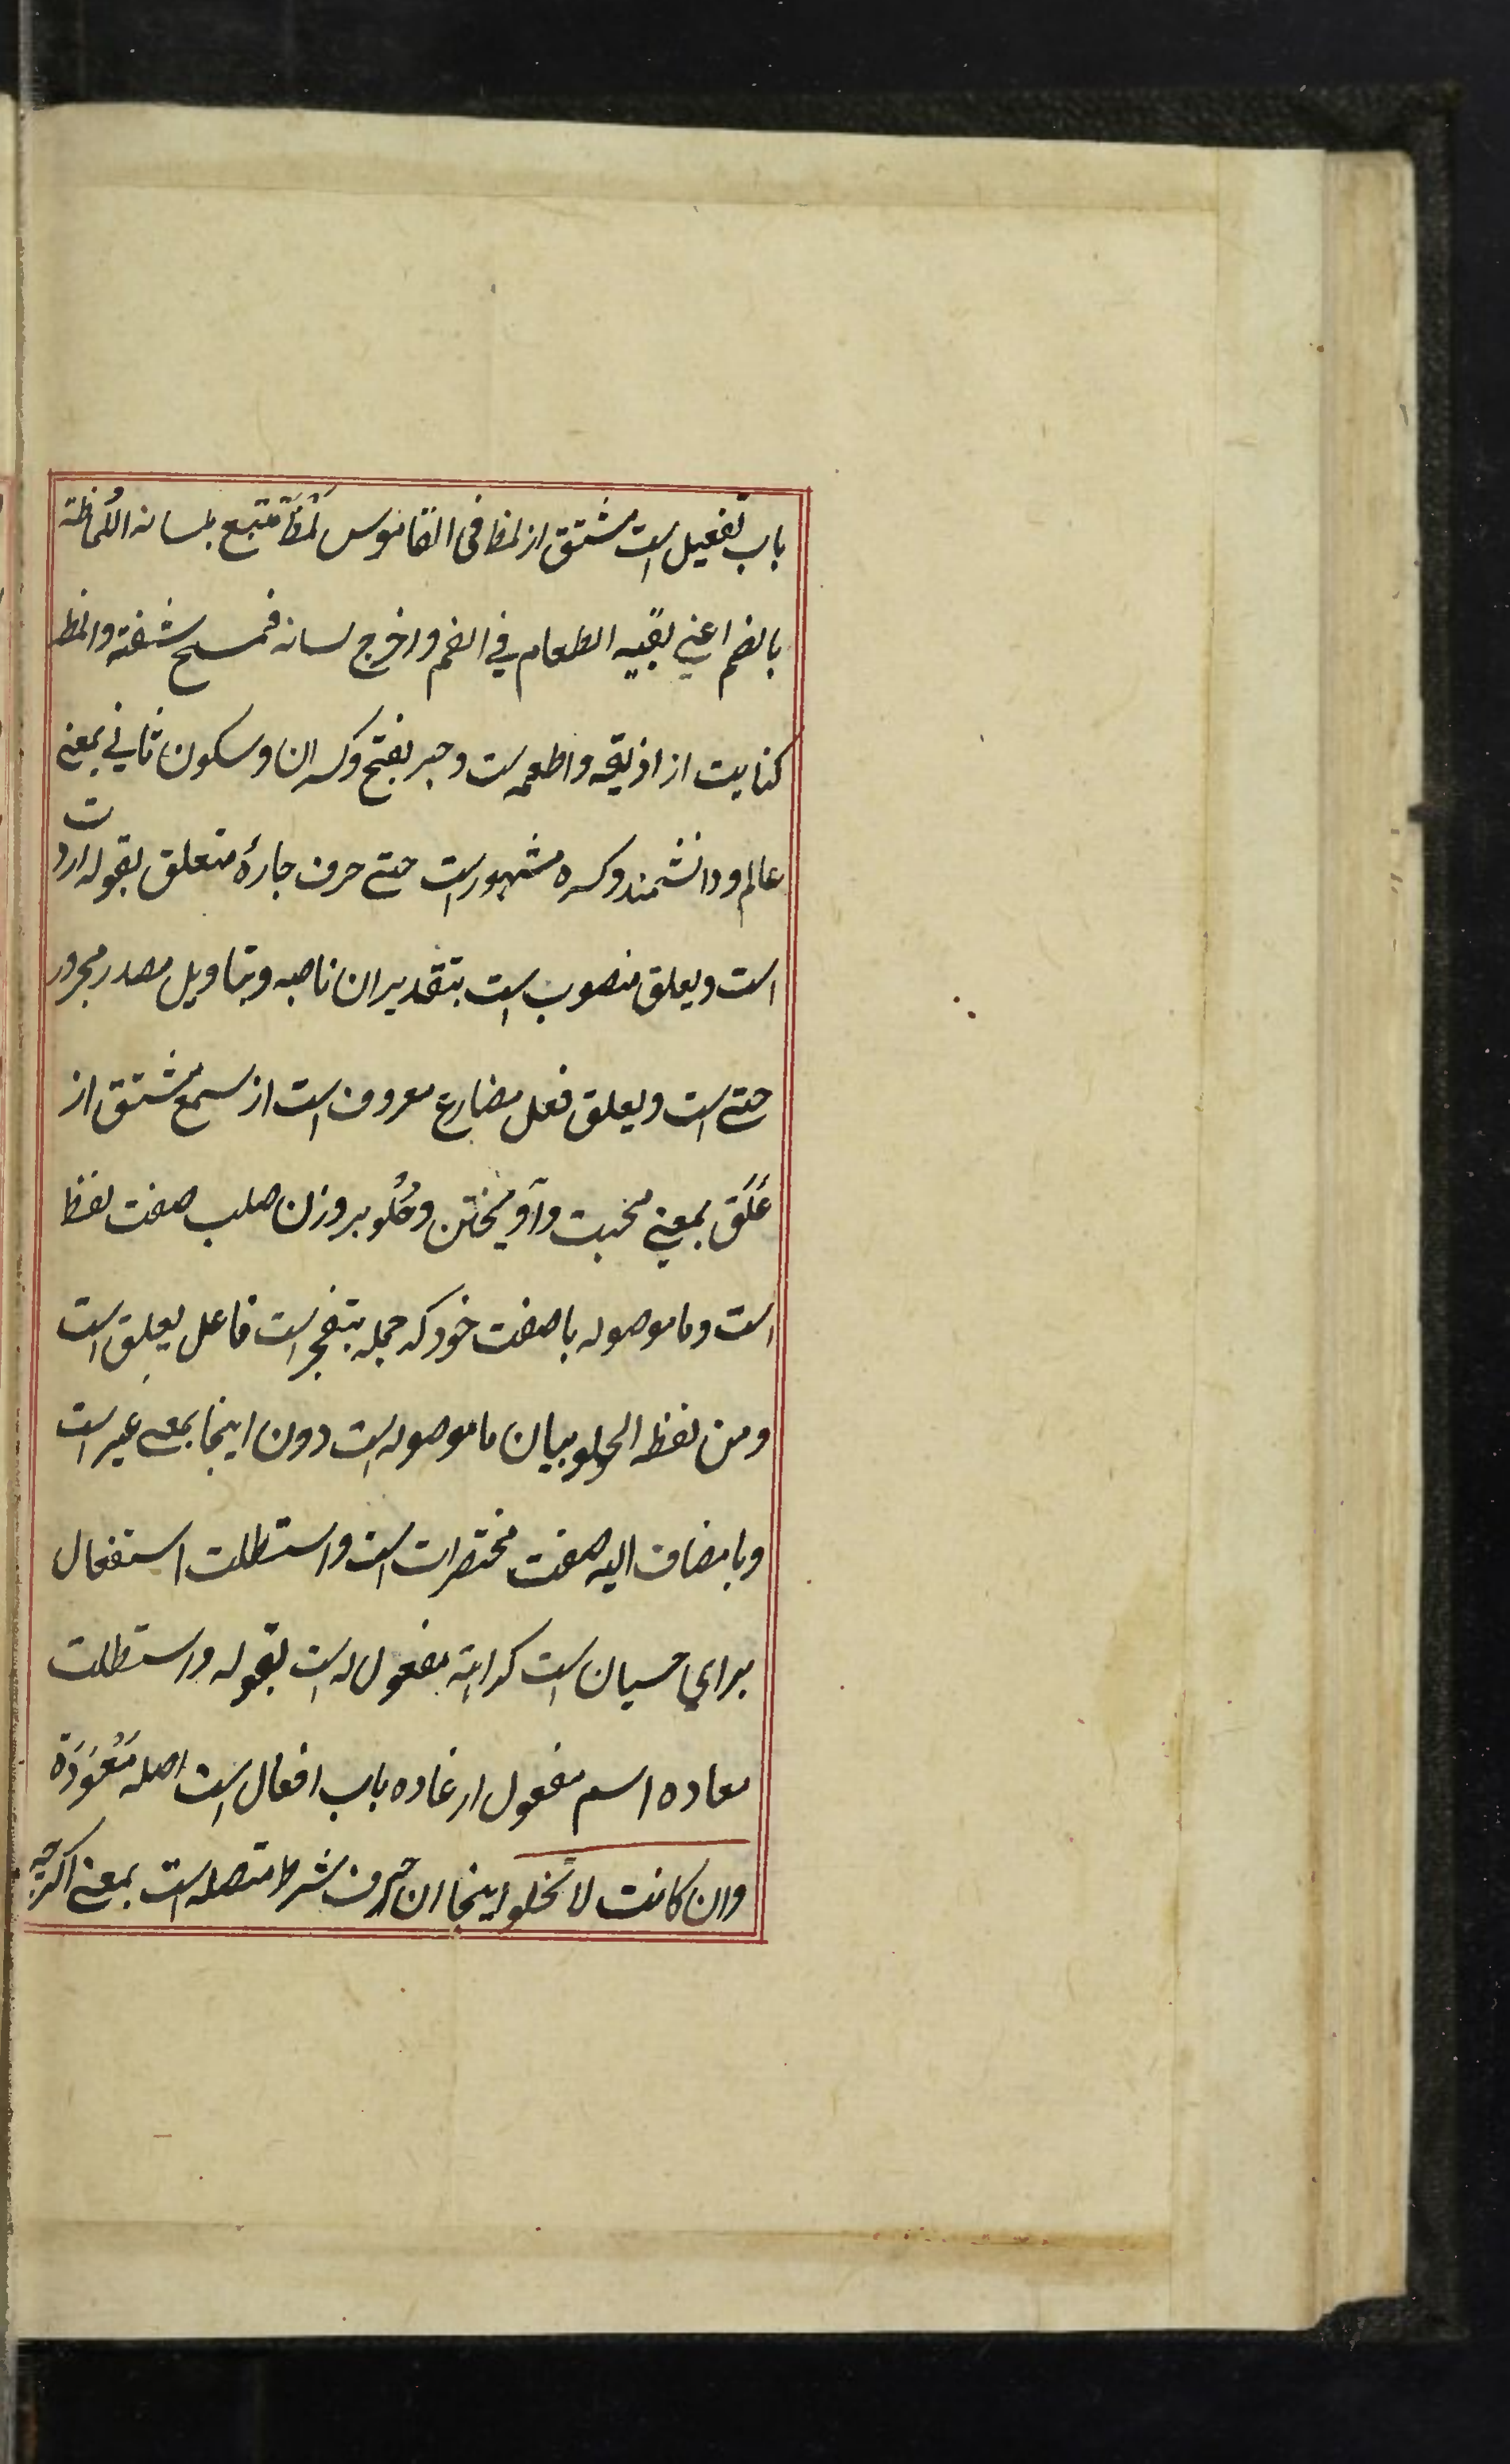 باب تفعیل است مشتق از لمظ فی القاموس لمظ تتبع بلسانه اللُماظة
بالضم اعنی بقیه الطعام فی الفم و اخرج لسانه فمسح شفته و المظ
کنایت از اذیقه و اطعمه ست و حبر بفتح و کسر ان و سکون ثانی بمعنی
عالم و دانشمند و کسره مشهور است حتی حرف جارهٔ متعلق بقوله اردت
است و یعلق منصوب است بتقدیر ان ناصبه و بتاویل مصدر مجرور
حتی است و یعلق فعل مضارع معروف است از سمع مشتق از
عَلَق بمعنی محبت و آویختن و حُلو بر وزن صلب صفت لفظ
است و ما موصوله با صفت خود که جمله یتفجر است فاعل یعلق است
و من لفظه الحلو بیان ما موصوله است دون اینجا بمعنی غیر است
و با مضاف الیه صفت مختصرات است و استطلت استفعال
برای حسبان است کراهة مفعول له است بقوله و استطلت
معاده اسم مفعول از عاده باب افعال است اصله مَعْوَدَة
و ان کانت لا تخلو اینجا ان حرف شرط متصله است بمعنی اگرچه